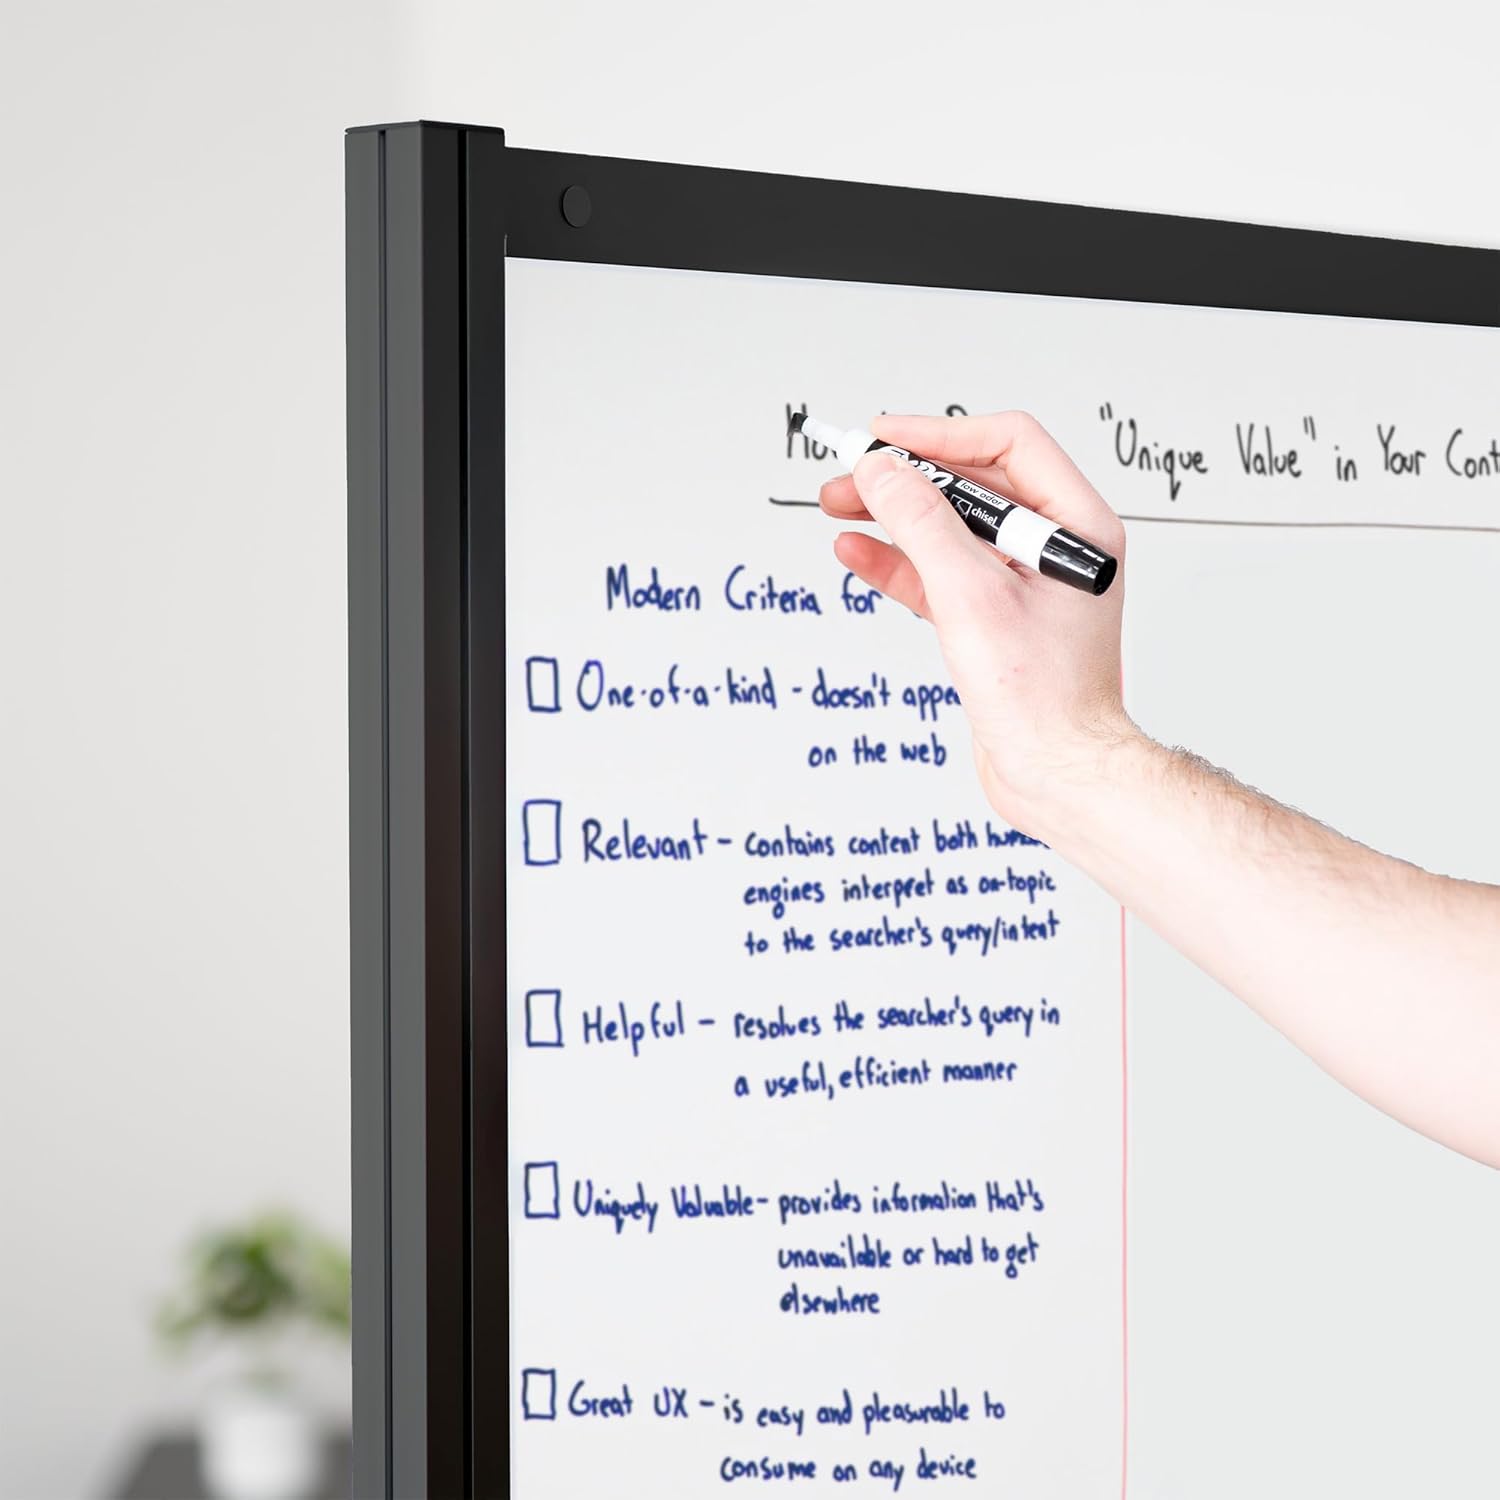 "Unique Value" in Your Cont
Modern Criteria for
One-of-a-kind - doesn't appea
on the web
Relevant - contains content both human
engines interpret as on-topic
to the searcher's query/intent
Helpful - resolves the searcher's query in
a useful, efficient manner
Uniquely Valuable - provides information that's
unavailable or hard to get
elsewhere
Great UX - is easy and pleasurable to
consume on any device
low odor
chisel